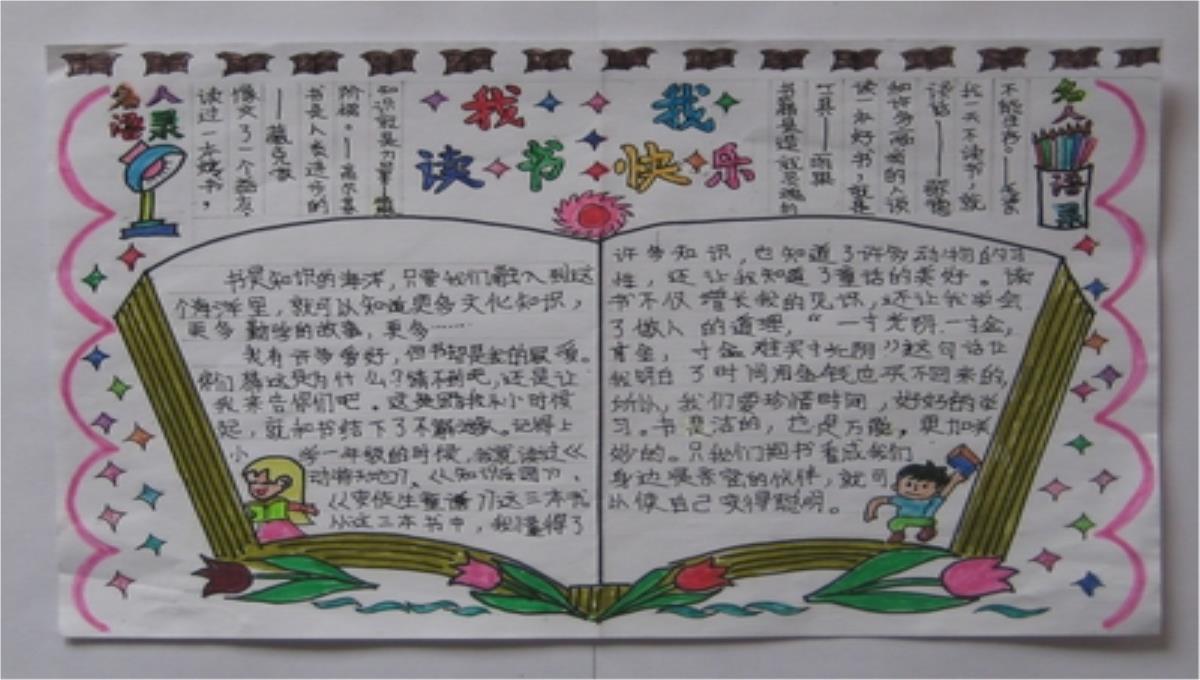 我 我
读书 快乐
名人
语录
知识就是力量——
阶梯。——高尔基
书是人类进步的
——藏克家
像交了一个益友。
读过一本好书，
名人
语录
不能生存。——
我一天不读书，就
谈话——歌德
和许多高尚的人谈
读一本好书，就是
工具——
书籍是造就灵魂的
书是知识的海洋，只要我们融入到这
个海洋里，就可以知道更多文化知识，
更多勤学的故事，更多……
我有许多爱好，但书却是我的最爱。
你们想这是为什么？猜不到吧，还是让
我来告你们吧。这是因我从小时候
起，就和书结下了不解之缘。记得上
小学一年级的时候，我读过《
动物》、《知识乐园》、
《安徒生童话》这三本书
从这三本书中，我懂得了
许多知识，也知道了许多动物的习
性，还让我知道了童话的美好。读
书不仅增长我的见识，还让我学会
了做人的道理，“一寸光阴一寸金，
寸金难买寸光阴”这句话让
我明白了时间用金钱也买不回来的，
所以，我们要珍惜时间，好好的学
习。书是洁的，也是万能，更加美
妙的。只我们把书看成我们
身边最亲密的伙伴，就可
以使自己变得聪明。